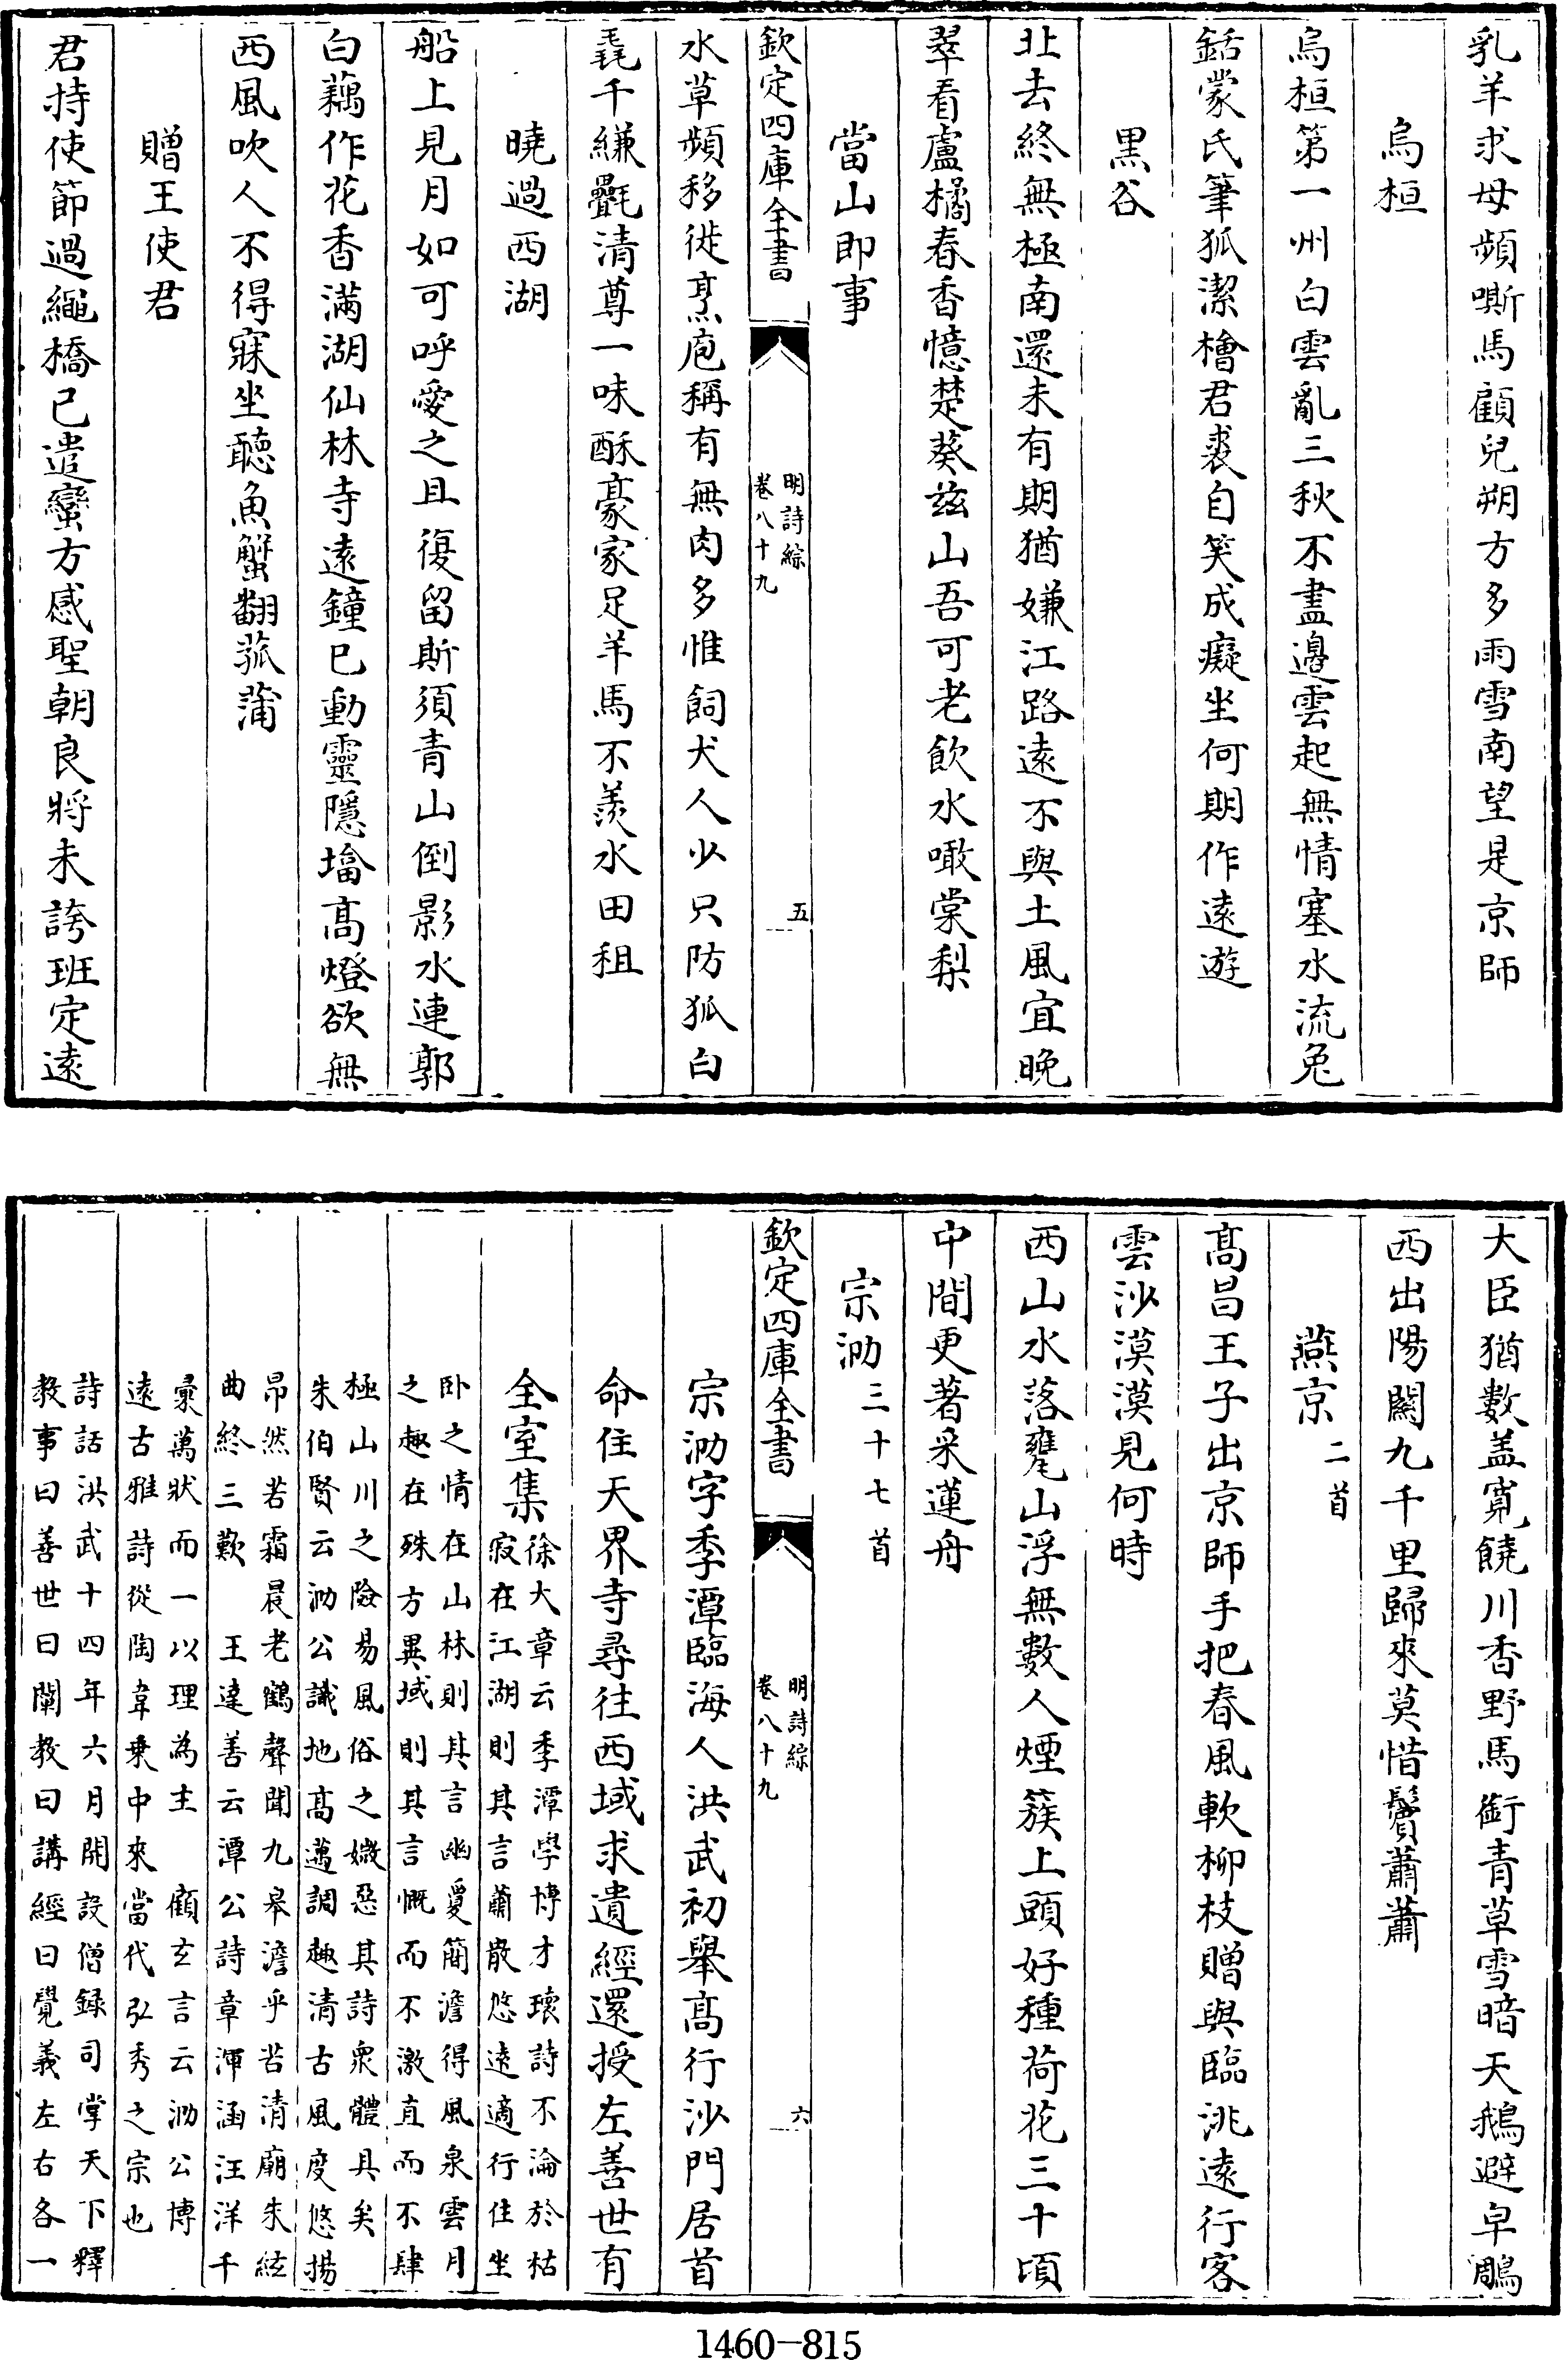 乳羊求母頻嘶馬顧兒朔方多雨雪南望是京師
烏桓
烏桓第一州白雲亂三秋不盡邊雲起無情塞水流兔
銛蒙氏筆狐潔檜君裘自笑成癡坐何期作遠遊
黒谷
北去終無極南還未有期猶嫌江路遠不與土風宜晚
翠看盧橘春香憶楚葵兹山吾可老飲水噉棠梨
當山即事
欽定四庫全書
明詩綜
卷八十九
五
水草頻移徙烹庖稱有無肉多惟飼犬人少只防狐白
毳千縑氎清尊一味酥豪家足羊馬不羨水田租
曉過西湖
船上見月如可呼愛之且復留斯須青山倒影水連郭
白藕作花香滿湖仙林寺遠鐘已動靈隱塔高燈欲無
西風吹人不得寐坐聽魚蟹翻菰蒲
贈王使君
君持使節過繩橋已遣蠻方感聖朝良將未誇班定遠
大臣猶數盖寛饒川香野馬銜青草雪暗天鵝避皁鵰
西出陽關九千里歸來莫惜鬢蕭蕭
燕京二首
髙昌王子出京師手把春風軟柳枝贈與臨洮遠行客
雲沙漠漠見何時
西山水落甕山浮無數人煙簇上頭好種荷花三十頃
中間更著采蓮舟
宗泐三十七首
欽定四庫全書
明詩綜
卷八十九
六
宗泐字季潭臨海人洪武初舉髙行沙門居首
命住天界寺尋往西域求遺經還授左善世有
全室集徐大章云季潭學博才瓌詩不淪於枯
寂在江湖則其言蕭散悠遠適行住坐
卧之情在山林則其言幽敻簡澹得風泉雲月
之趣在殊方異域則其言慨而不激直而不肆
極山川之險易風俗之媺惡其詩衆體具矣
朱伯賢云泐公識地髙邁調趣清古風度悠揚
昂然若霜晨老鶴聲聞九皋澹乎若清廟朱絃
曲終三歎　王達善云潭公詩章渾涵汪洋千
彙萬狀而一以理為主　顧玄言云泐公博
遠古雅詩從陶韋乗中來當代弘秀之宗也
詩話洪武十四年六月開設僧録司掌天下釋
教事曰善世曰闡教曰講經曰覺義左右各一
1460-815